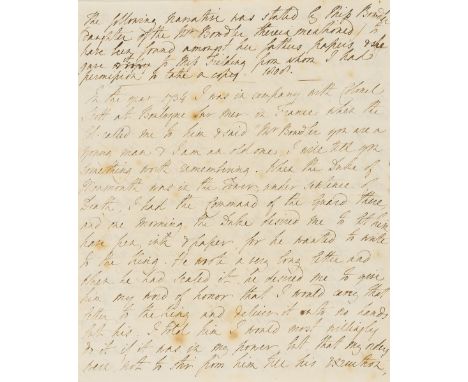 The following Narrative was stated by Miss Bowdler
daughter of the Mr Bowdler, therein mentioned, to
have been found amongst her fathers papers, & she
gave to Miss Fielding from whom I had
permission to take a copy. 1808.
In the year 1734 I was in company with Colonel
Scott at Boulogne sur mer in France when the
Col. called me to him & said "Mr Bowdler you are a
young man & I am an old one, I will tell you
something worth remembering. When the Duke of
Monmouth was in the Tower, under sentence of
death, I had the command of the guard there
and one morning the Duke desired me to let him
have pen, ink & paper, for he wanted to write
to the King. He wrote a very long letter and
when he had sealed it, he desired me to give
him my word of honor that I would carry that
letter to the King and deliver it into no hands
but his. I told him I would most willingly
do it if it was in my power but that my orders
were not to stir from him till his execution,